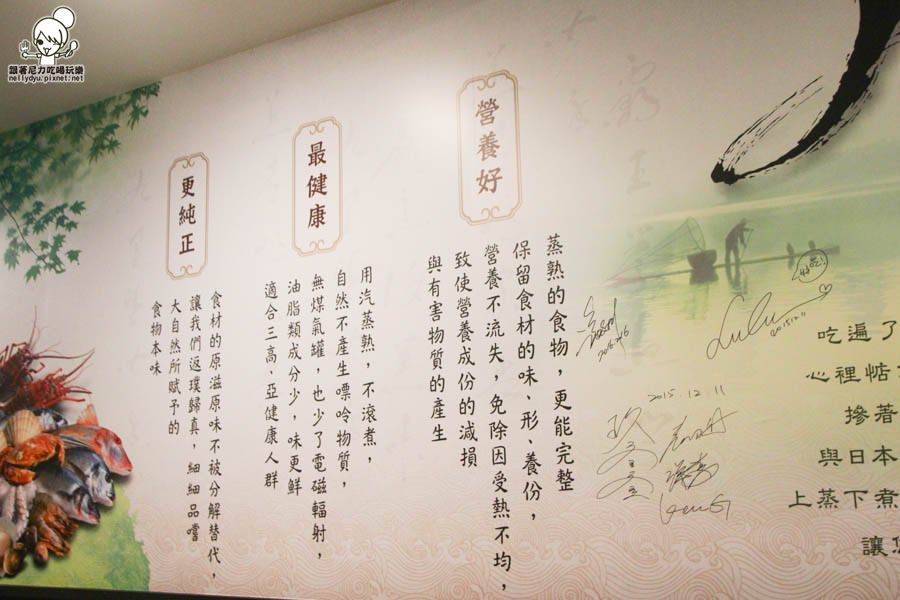 跟著尼力吃喝玩樂
nellydyu.pixnet.net
營養好
蒸熟的食物，更能完整
保留食材的味、形、養份，
營養不流失，免除因受熱不均，
致使營養成份的減損
與有害物質的產生
最健康
用汽蒸熟，不滾煮，
自然不產生嘌呤物質，
無煤氣罐，也少了電磁輻射，
油脂類成分少，味更鮮
適合三高、亞健康人群
更純正
食材的原滋原味不被分解替代，
讓我們返璞歸真，細細品嚐
大自然所賦予的
食物本味
吃遍了
心裡惦
摻著
與日本
上蒸下煮
讓您
Lulu
2015.12.11
2015.12.11